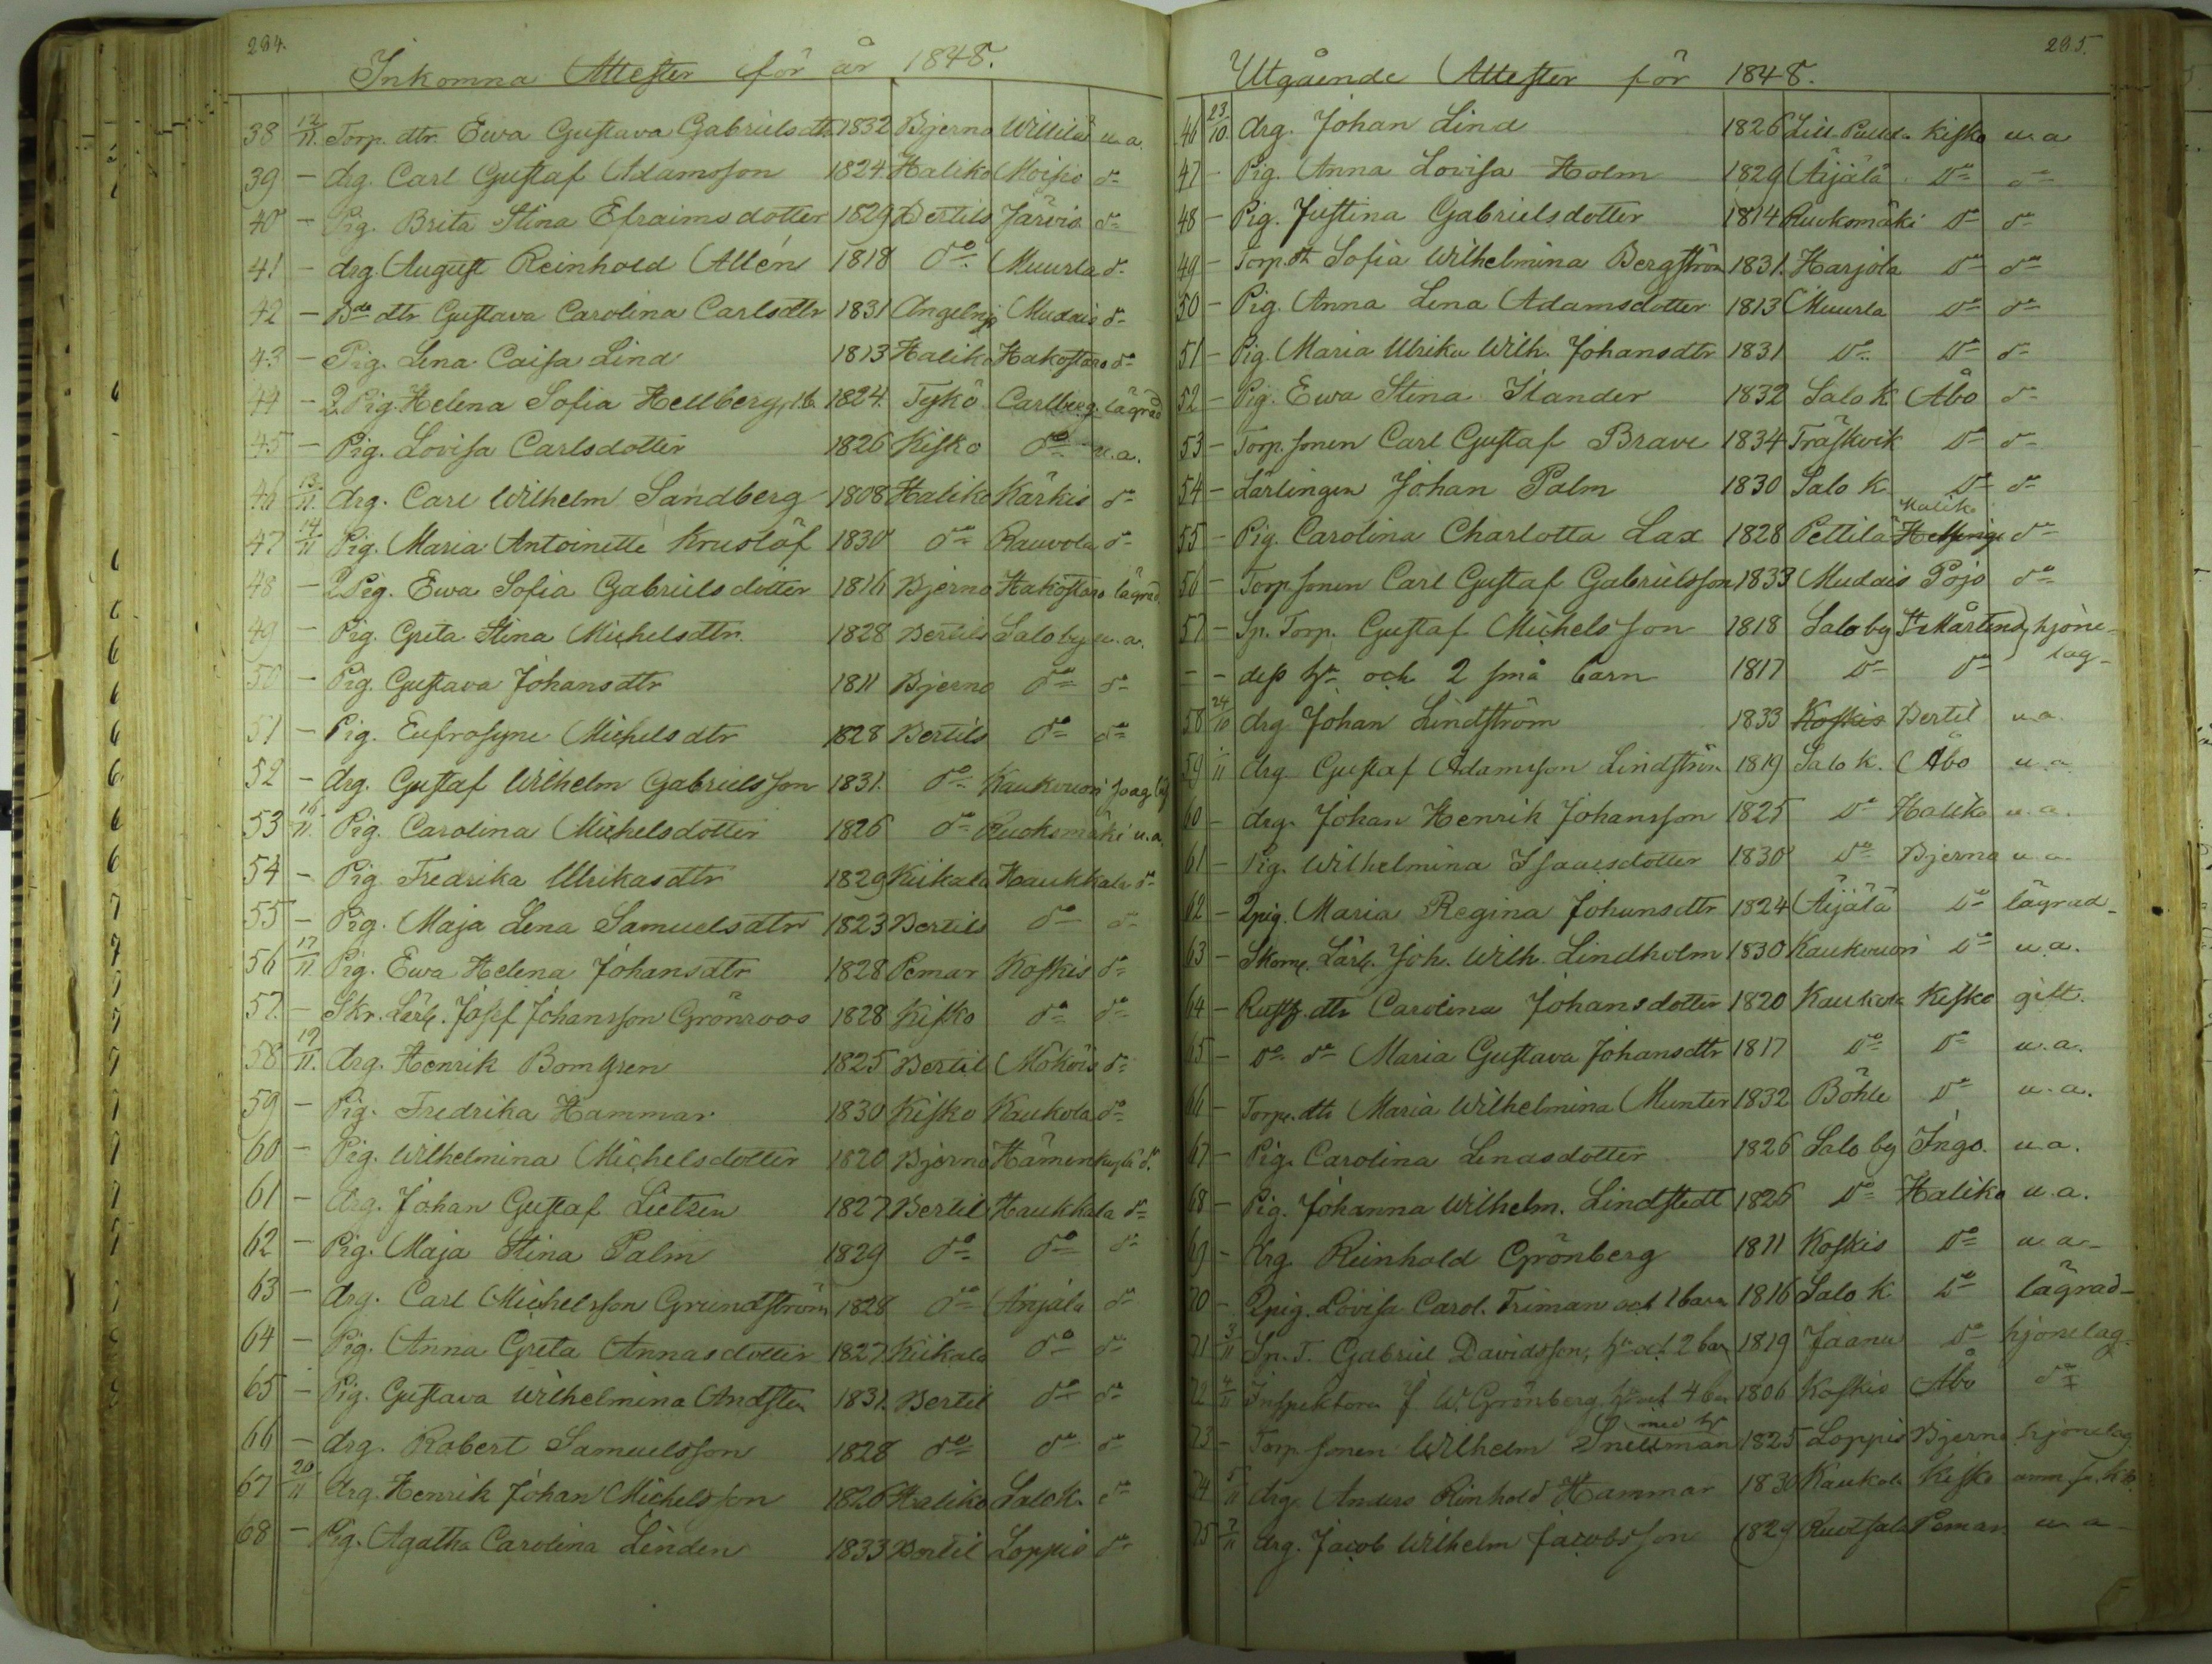 294.
Inkomna Attester för år 1848.
38 12/11. Torp. dtr. Ewa Gustava Gabrielsdtr 1832 Bjerno Willilä u.a.
39 – drg. Carl Gustaf Adamsson 1824 Haliko Moisio do
40 – Pig. Brita Stina Efraimsdotter 1829 Bertils Järvis do
41 – drg. August Reinhold Allén 1818 do Muurla do
42 – Bde dtr Gustava Carolina Carlsdtr 1831 Angelnj. Mudais do
43 – Pig. Lena Caisa Lind 1813 Haliko Hakostaro do
44 – Q Pig. Helena Sofia Hellberg, 1 b. 1824. Tykö Carlberg. lägrad
45 – Pig. Lovisa Carlsdotter 1826 Kisko do u.a.
46 13/11. drg. Carl Wilhelm Sandberg 1808 Haliko Kärkis do
47 14/11 Pig. Maria Antoinette Kruslöf 1830 do Rauvola do
48 – Q Pig. Ewa Sofia Gabrielsdotter 1816 Bjerno Hakostaro lägrad.
49 – Pig. Greta Stina Michelsdtr. 1828 Bertils Salo by u.a.
50 – Pig. Gustava Johansdtr 1811 Bjerno do do
51 – Pig. Eufrosyne Michelsdtr 1828 Bertils do do
52 – drg. Gustaf Wilhelm Gabrielsson 1831. do Kaukvuori
53 16/11. Pig. Carolina Michelsdotter 1826 do Ruoksmäki u.a.
54 – Pig. Fredrika Ulrikasdtr 1829 Kiikala Haukkala do
55 – Pig. Maja Lena Samuelsdtr 1823 Bertils do do
56 17/11. Pig. Ewa Helena Johansdtr 1828 Pemar Koskis do
57 – Skr. Lärl. Josef Johansson Grönroos 1828 Kisko do do
58 19/11. drg. Henrik Bomgren 1825 Bertil Moköis do
59 – Pig. Fredrika Hammar 1830 Kisko Kaukola do
60 – Pig. Wilhelmina Michelsdotter 1820 Bjerno Hämenkylä do
61 – drg. Johan Gustaf Lietzen 1827 Bertil Haukkala do
62 – Pig. Maja Stina Palm 1829 do do do
63 – drg. Carl Michelsson Grundström 1828 do Anjala do
64 – Pig. Anna Greta Annasdotter 1827 Kiikala do do
65 – Pig. Gustava Wilhelmina Andsten 1831. Bertil do do
66 – drg. Robert Samuelsson 1828 do do do
67 20/11 drg. Henrik Johan Michelsson 1826 Haliko Salo K. do
68 – Pig. Agatha Carolina Linden 1833 Bertil Loppis do
295.
Utgående Attester för 1848.
46 23/10. drg. Johan Lind 1826 Lill Kisko u.a
47 – Pig. Anna Lovisa Holm 1829 Äijälä do do
48 – Pig. Justina Gabrielsdotter 1814 Ruoksmäki do do
49 – Torp. dt Sofia Wilhelmina Bergström 1831. Harjola do do
50 – Pig. Anna Lena Adamsdotter 1813 Muurla do do
51 – Pig. Maria Ulrika Wilh. Johansdtr 1831 do do do
52 – Pig. Ewa Stina Stander 1832 Salo K Åbo do
53 – Torp. sonen Carl Gustaf Brave 1834 Träskvik do do
54 – Lärlingen Johan Palm 1830 Salo K do do
Halik
55 – Pig. Carolina Charlotta Lax 1828 Pettilä Helsinge do
56 – Torp. sonen Carl Gustaf Gabrielsson 1833 Mudais Pojo do
57 – Sp. Torp. Gustaf Michelsson 1818 Salo by St Mårtens hjone-
– – dess h. och 2 små barn 1817 do do lag
58 24/10 drg. Johan Lindström 1833 Koskis Bertil u.a
59 drg Gustaf Adamsson Lindström 1819 Salo k. Åbo u.a
60 – drg. Johan Henrik Johansson 1825 do Haliko u.a.
61 – Pig. Wilhelmina Isaacsdotter 1830 do Bjerno u.a.
62 – Qpig. Maria Regina Johansdtr 1824 Äijälä do lägrad
63 – Skom. Lärl. Joh. Wilh. Lindholm 1830 Kaukvuori do u.a.
64 – Rustg. dtr Carolina Johansdotter 1820 Kaukola Kisko gift.
65 – do do Maria Gustava Johansdtr 1817 do do u.a.
66 – Torp. dtr Maria Wilhelmina Munter 1832 Böhle do u.a.
67 – Pig. Carolina Lenasdotter 1826 Salo by Ingo. u.a.
68 – Pig. Johanna Wilhelm. Lindstedt 1826 do Haliko u.a.
69 – drg Reinhold Grönberg 1811 Koskis do u.a
70 – Qpig. Lovisa Carol. Friman och 1 barn 1816 Salo K do lägrad
71 3/11 Sp. T. Gabriel Davidsson, h. och 2 barn 1819 Jaanu do hjonelag.
72 4/11 Inspektoren J. W. Grönberg, h. och 4 bar 1806 Koskis Åbo do
med h
73 – Torp sonen Wilhelm Snellman 1825 Loppis Bjerno hjonelag
74 5/11 drg. Anders Rinhold Hammar 1830 Kaukola Kisko
75 7/11 drg. Jacob Wilhelm Jacobsson 1829 Ruotsala Pemar u a